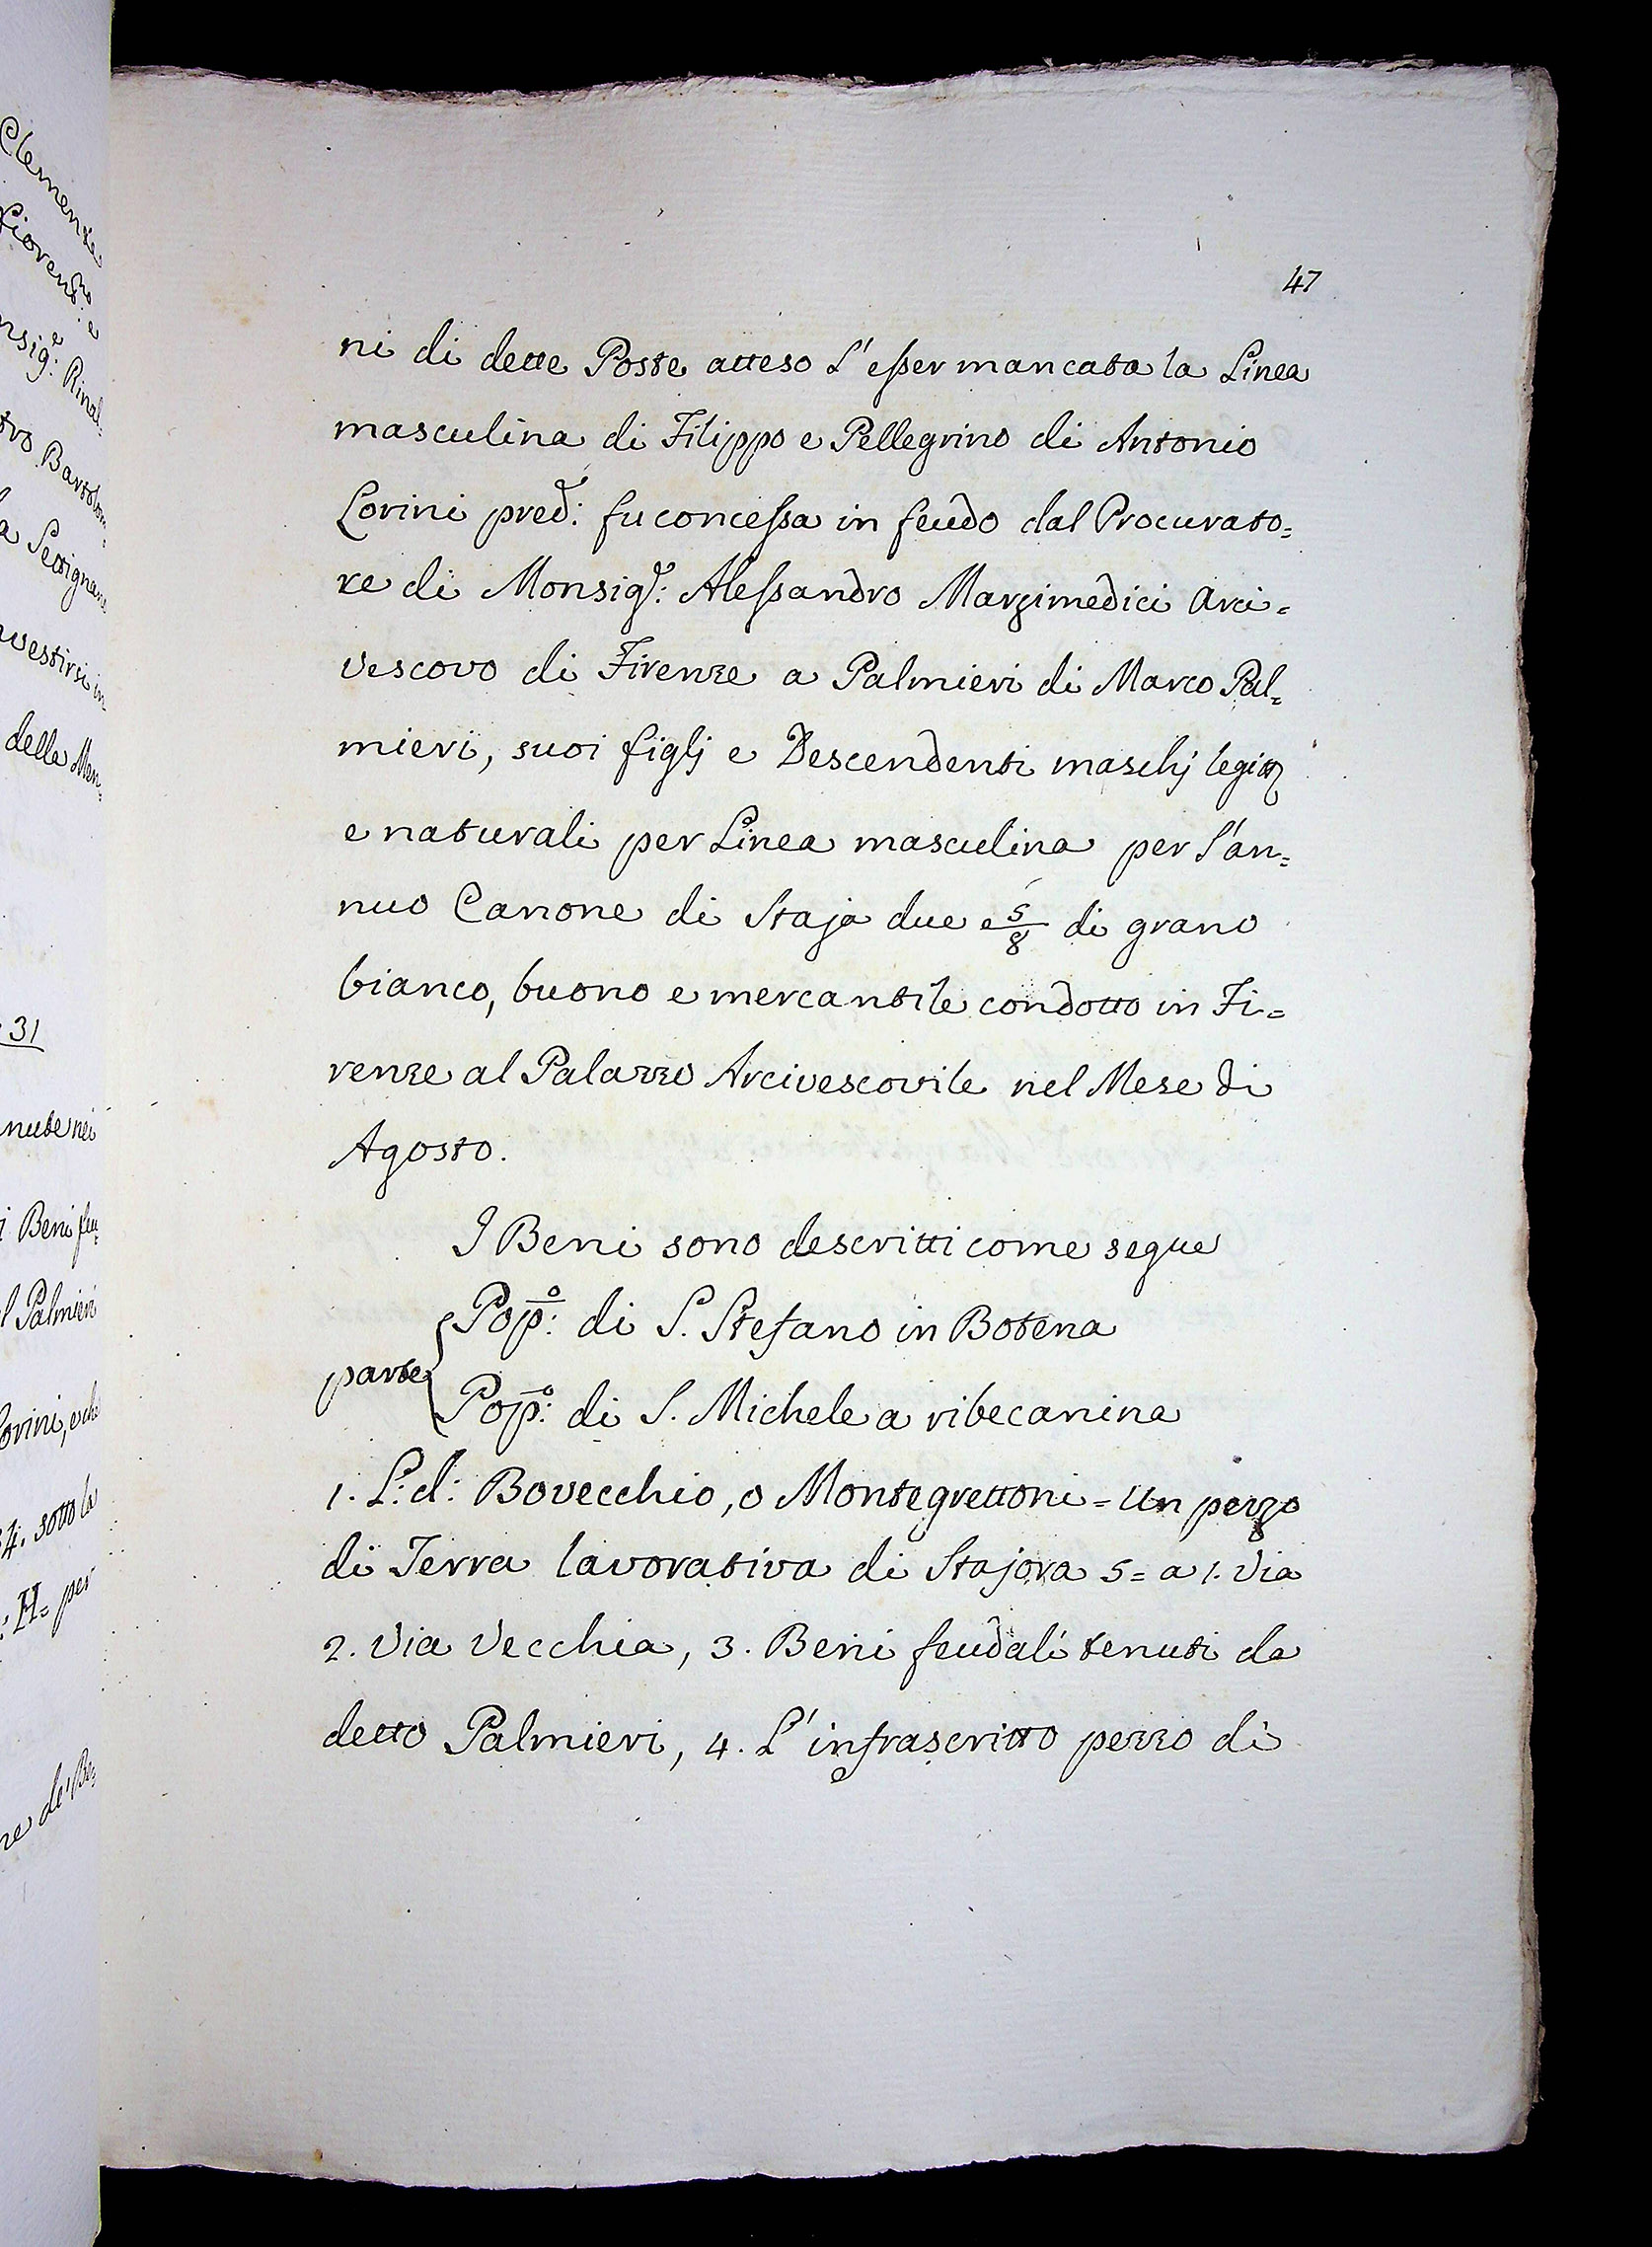 47
ni di dette Poste atteso L'esser mancata la Linea
masculina di Filippo e Pellegrino di Antonio
Lorini pred:e fu concessa in feudo dal Procurato=
re di Monsig:r Alessandro Marzimedici Arci=
vescovo di Firenze a Palmieri di Marco Pal=
mieri, suoi figlj e Descendenti maschj legitt
e naturali per Linea masculina per l'an=
nuo Canone di Staja due e 5/8 di grano
bianco, buono e mercantile condotto in Fi=
renze al Palazzo Arcivescovile nel Mese di
Agosto.
I Beni sono descritti come segue
Pop:o di S. Stefano in Botena
parte
Pop:o di S. Michele a ribecanina
1. L:d: Bovecchio, o Montegrettoni = Un pezzo
di Terra lavorativa di Stajora 5= a 1. Via
2. Via Vecchia, 3. Beni feudali tenuti da
detto Palmieri, 4. L'infrascritto pezzo di
Clemente
Fiorent:o e
Rinal=
Bartolom
Settignano
vestirsi in
delle Men=
31
nute nei
i Beni feu=
l Palmieri
orini, e che
34. sotto la
: H= per
re de' Be=